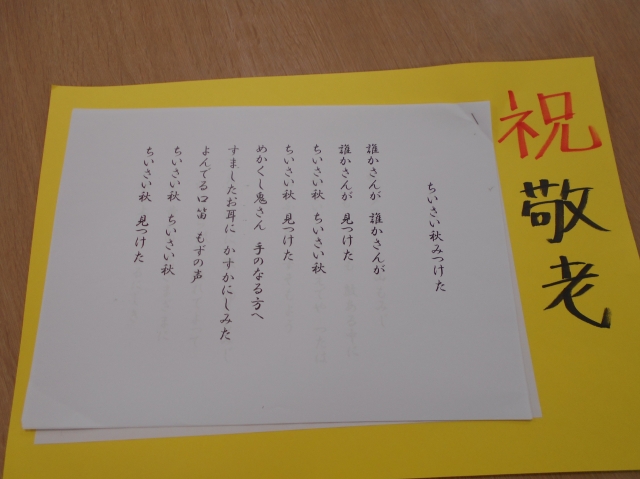 祝敬老
ちいさい秋みつけた
誰かさんが 誰かさんが
誰かさんが 見つけた
ちいさい秋 ちいさい秋
ちいさい秋 見つけた
めかくし鬼さん 手のなる方へ
すましたお耳に かすかにしみた
よんでる口笛 もずの声
ちいさい秋 ちいさい秋
ちいさい秋 見つけた